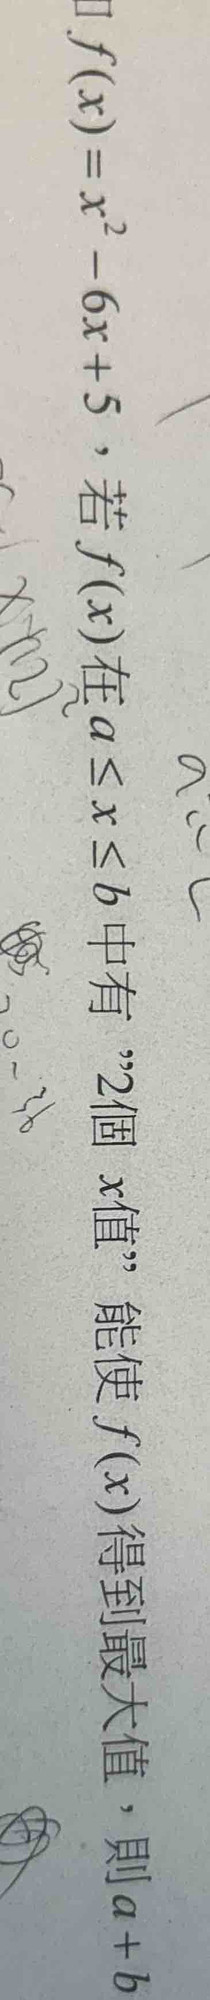 f(x)=x²-6x+5，若f(x)在a≤x≤b中有 ”2個 x值” 能使f(x)得到最大值，則a+b